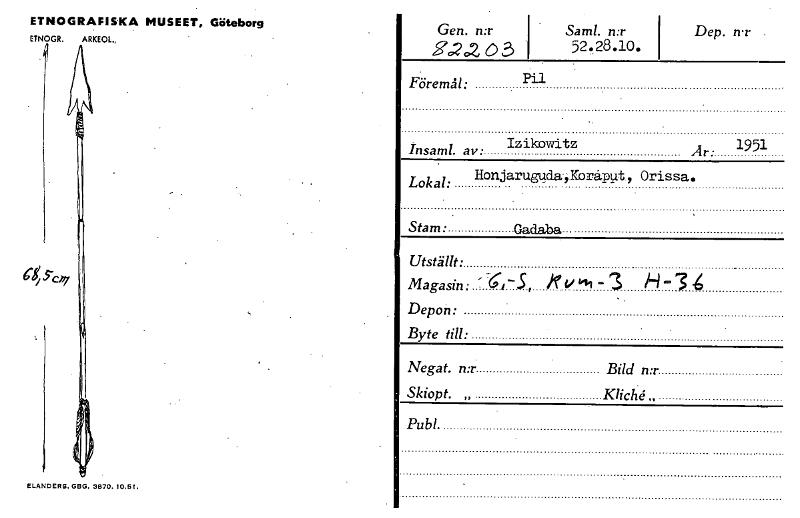 ETNOGRAFISKA MUSEET, Göteborg
ETNOGR. ARKEOL.
68,5cm
ELANDERS, GBG. 3870. 10.51.
Gen. n:r Saml. n:r Dep. n:r
82203 52.28.10.
Föremål: Pil
Insaml. av: Izikowitz År: 1951
Lokal: Honjaruguda,Koraput, Orissa.
Stam: Gadaba
Utställt:
Magasin: G,-S, Rum-3 H-36
Depon:
Byte till:
Negat. n:r Bild n:r
Skiopt. „ Kliché „
Publ.